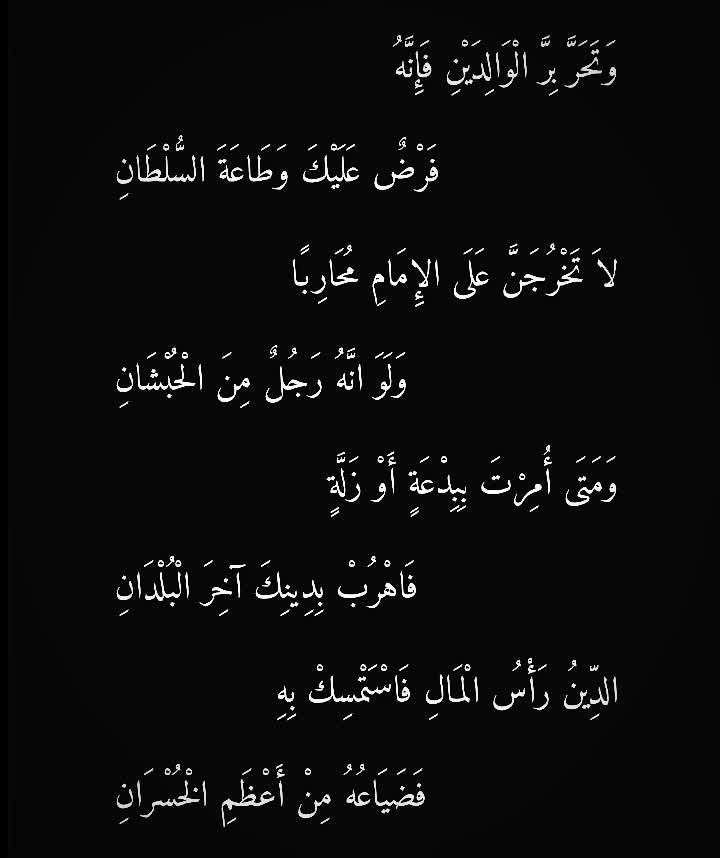 وَتَحَرَّ بِرَّ الْوَالِدَيْنِ فَإِنَّهُ
فَرْضٌ عَلَيْكَ وَطَاعَةَ السُّلْطَانِ
لاَ تَخْرُجَنَّ عَلَى الإِمَامِ مُحَارِبًا
وَلَوَ انَّهُ رَجُلٌ مِنَ الْحُبْشَانِ
وَمَتَى أُمِرْتَ بِبِدْعَةٍ أَوْ زَلَّةٍ
فَاهْرُبْ بِدِينِكَ آخِرَ الْبُلْدَانِ
الدِّينُ رَأْسُ الْمَالِ فَاسْتَمْسِكْ بِهِ
فَضَيَاعُهُ مِنْ أَعْظَمِ الْخُسْرَانِ